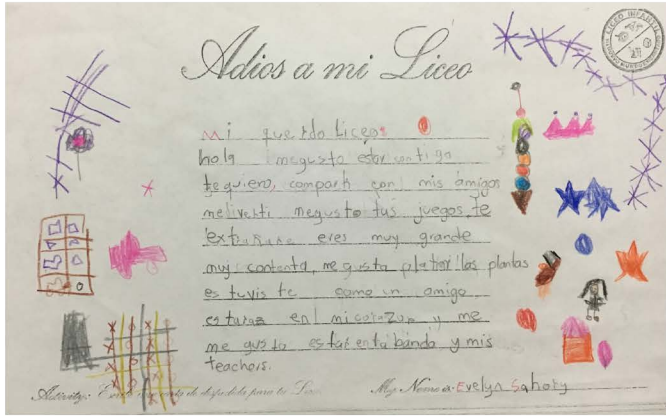 LICEO INFANTIL
Adios a mi Liceo
Mi querdo Liceo:
hola megusto estar contigo
tequiero, compartí con mis amigos
melivertí megusto tus juegos te
extrañare eres muy grande
muy contenta, me gusta platiar las plantas
estuviste como un amigo
estaraz en mi corazon y me
me gusta estar enta bando y mis
teachers.
Activity: carta de despedida para tu Liceo
My Name is: Evelyn Sahory